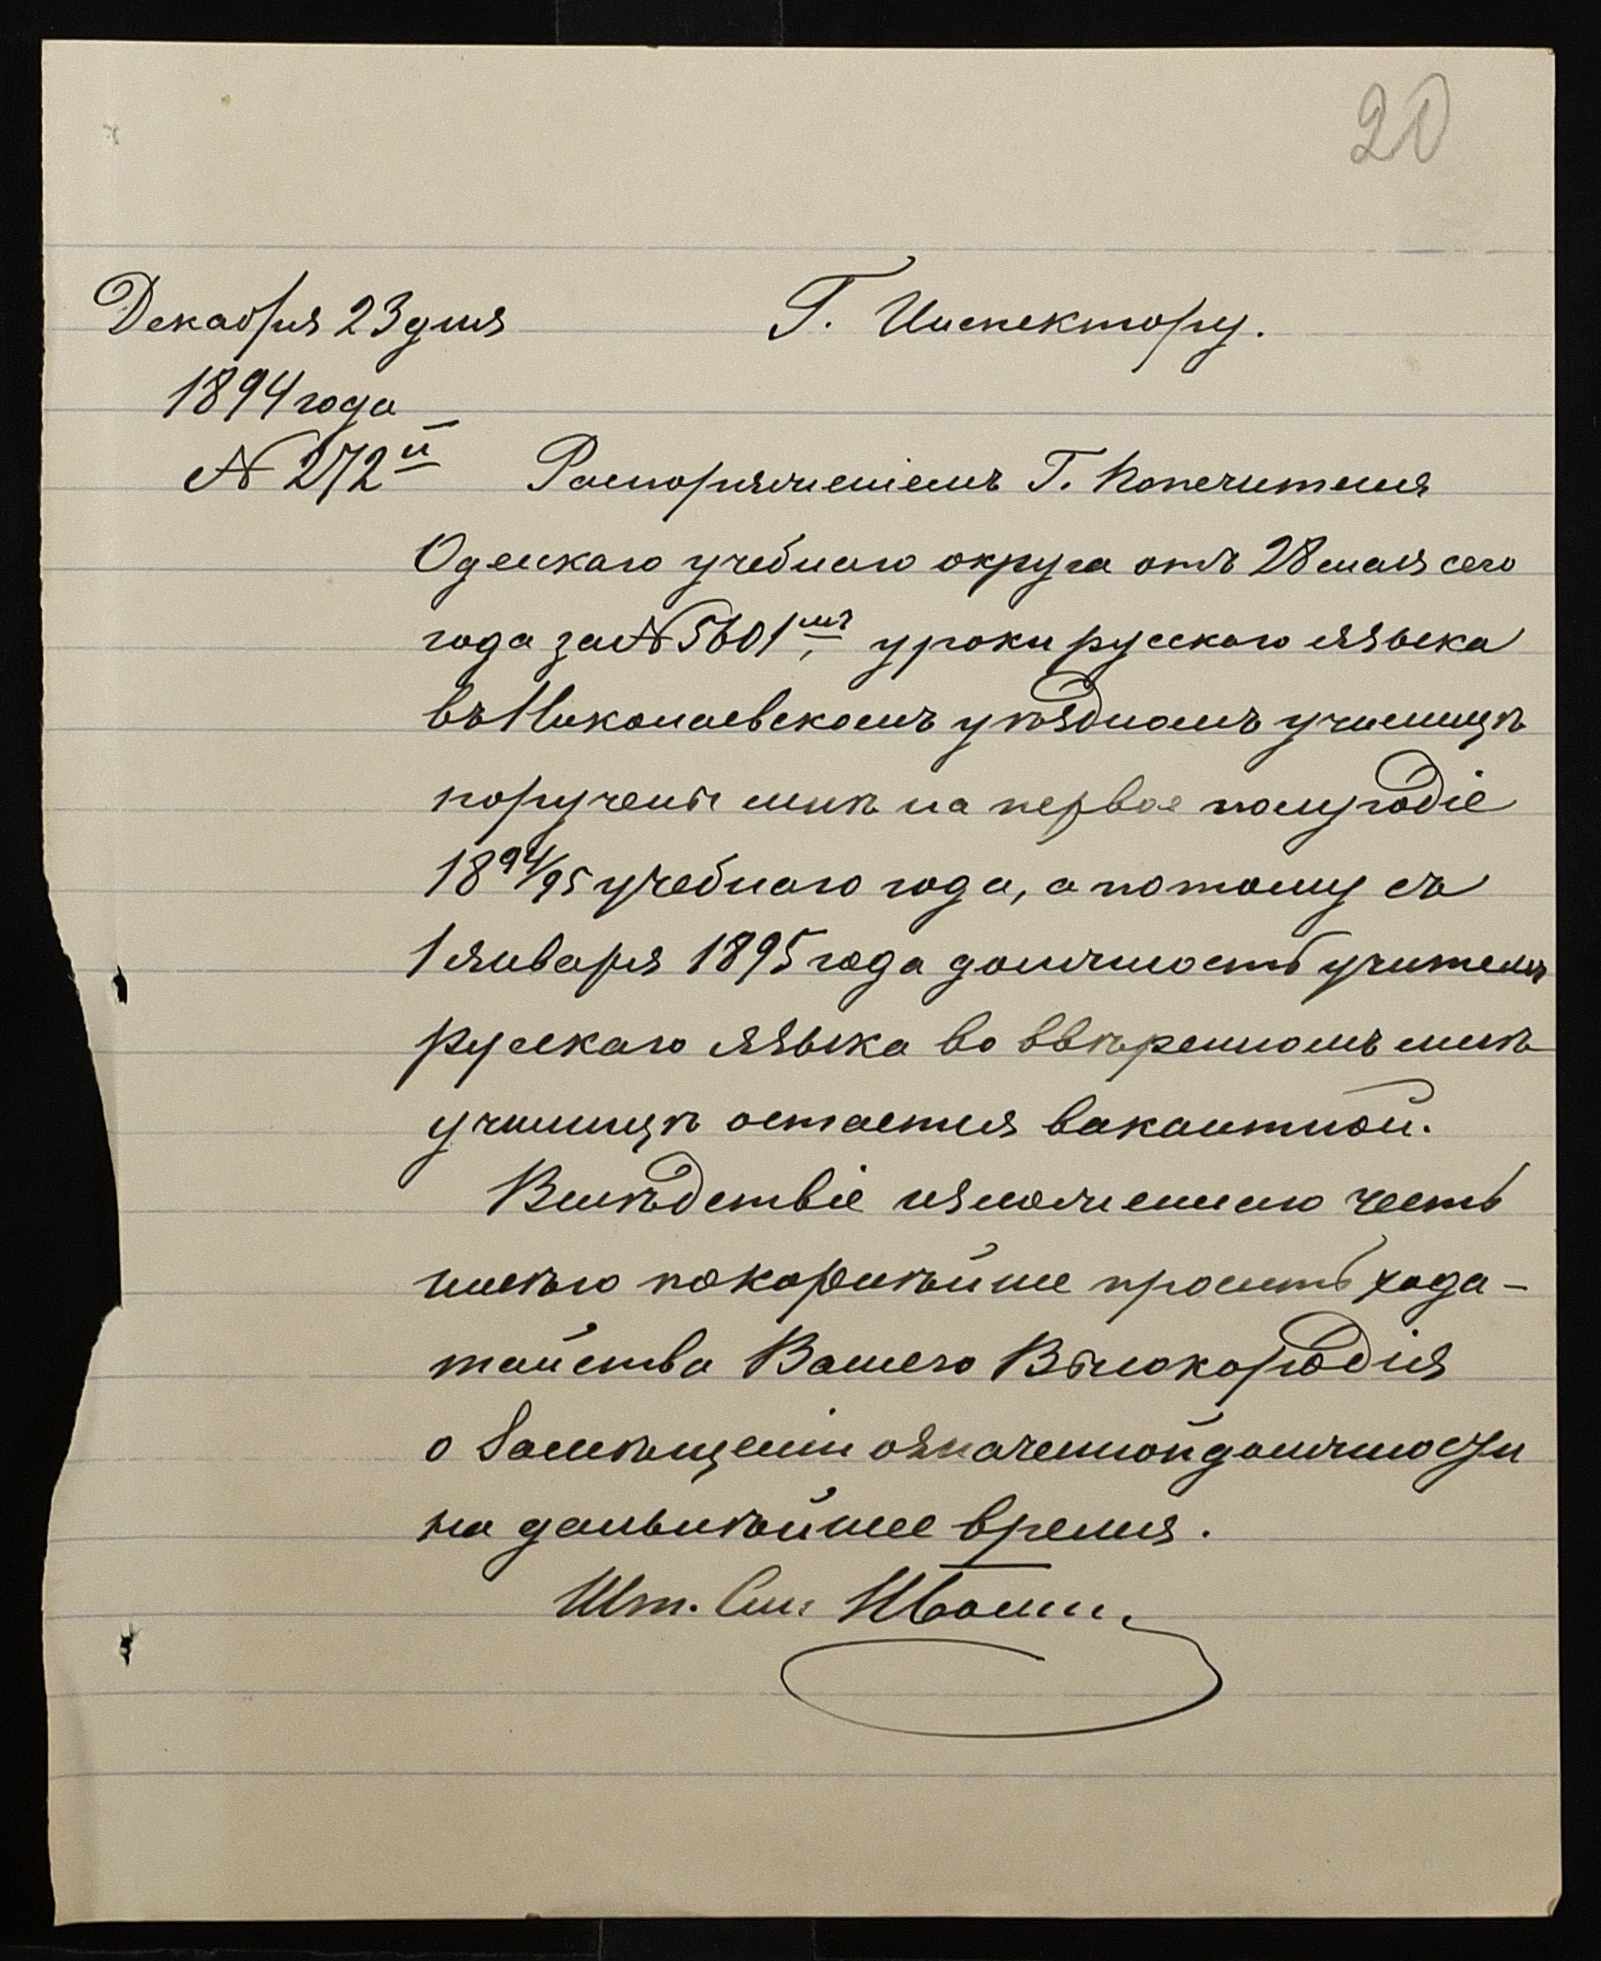 20
Декабря 23 дня
Г. Инспектору.
1894 года
№ 272й
Распоряженіемъ Г. Попечителя
Одесскаго учебнаго округа отъ 28 мая сего
года за № 5601мъ, уроки русскаго языка
въ Николаевскомъ уѣздномъ училищѣ
поручены мнѣ на первое полугодіе
1894/95 учебнаго года, а потому съ
1 января 1895 года должность учителя
русскаго языка во ввѣренномъ мнѣ
училищѣ остается вакантной.
Вслѣдствіе изложеннаго честь
имѣю покорнѣйше просить хода-
тайства Вашего Высокородія
о замѣщеніи означенной должности
на дальнѣйшее время.
Шт. См.